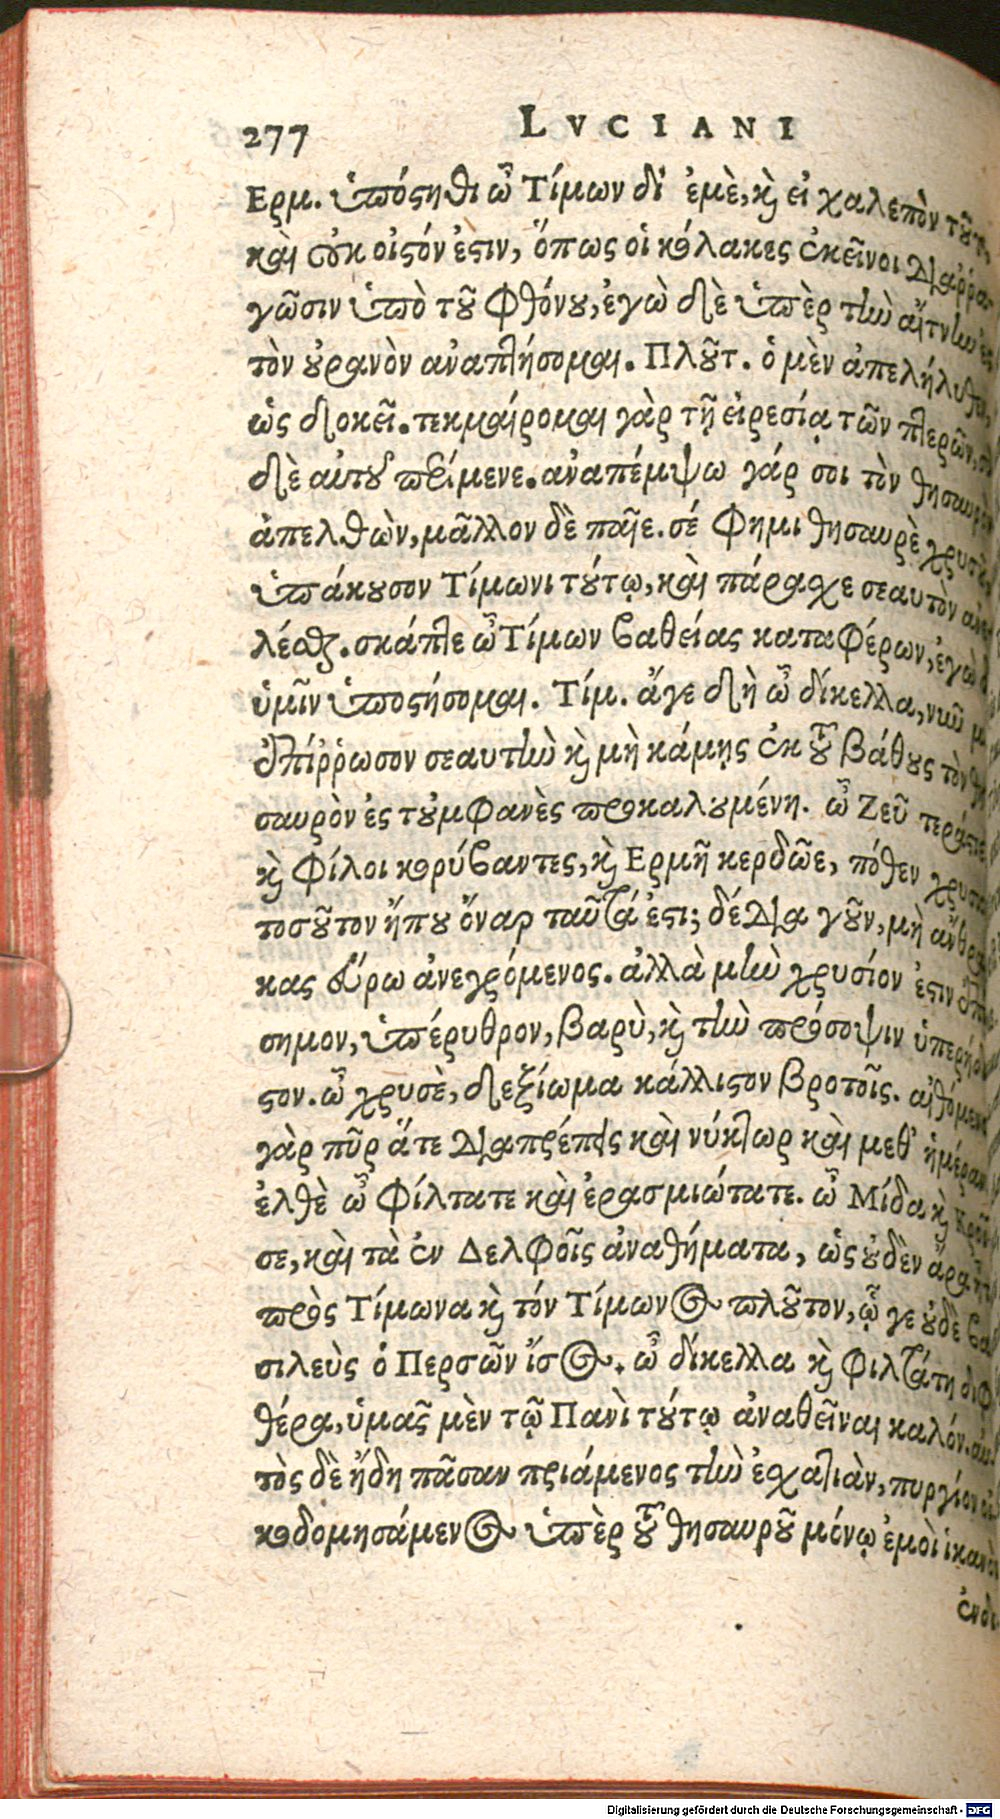 277 LVCIANI
Ερμ. ὑπόστηθι ὦ Τίμων δι' ἐμὲ, κὶ εἰ χαλεπὸν
καὶ οὐκ οἰστόν ἐστιν, ὅπως οἱ κόλακες ἐκεῖνοι διαρρα-
γῶσιν ὑπὸ τοῦ φθόνου, ἐγὼ δὲ ὑπὲρ τὴν αἴτνην ἐς
τὸν οὐρανὸν ἀναπτήσομαι. Πλοῦτ. ὁ μὲν ἀπελήλυθεν,
ὡς δοκεῖ. τεκμαίρομαι γὰρ τῇ εἰρεσίᾳ τῶν πτερῶν,
δὲ αὐτοῦ περίμενε. ἀναπέμψω γάρ σοι τὸν θησαυρὸν
ἀπελθὼν, μᾶλλον δὲ παῖε. σέ φημι θησαυρὲ χρυσοῦ
ὑπάκουσον Τίμωνι τούτῳ, καὶ πάρασχε σεαυτὸν ἀνε-
λέσθαι. σκάπτε ὦ Τίμων βαθείας καταφέρων, ἐγὼ
ὑμῖν ὑποστήσομαι. Τίμ. ἄγε δὴ ὦ δίκελλα, νῦν μοι
ἐπίῤῥωσον σεαυτὴν κὶ μὴ κάμῃς ἐκ τοῦ βάθους τὸν θη-
σαυρὸν ἐς τοὐμφανὲς προκαλουμένη. ὦ Ζεῦ τεράστιε
κὶ φίλοι κορύβαντες, κὶ Ερμῆ κερδῶε, πόθεν χρυσίον
τοσοῦτον ἤπου ὄναρ ταῦτά ἐστι; δέδια γοῦν, μὴ ἄνθρα-
κας εὕρω ἀνεγρόμενος. ἀλλὰ μὴν χρυσίον ἐστιν ἐπί-
σημον, ὑπέρυθρον, βαρὺ, κὶ τὴν πρόσοψιν ὑπερήδι-
στον. ὦ χρυσὲ, δεξίωμα κάλλιστον βροτοῖς. αἰθόμενον
γὰρ πῦρ ἅτε διαπρέπεις καὶ νύκτωρ καὶ μεθ' ἡμέραν
ἐλθὲ ὦ φίλτατε καὶ ἐρασμιώτατε. ὦ Μίδα κὶ Κροῖ-
σε, καὶ τὰ ἐν Δελφοῖς ἀναθήματα, ὡς οὐδὲν ἄρα ἦτε
πρὸς Τίμωνα κὶ τόν Τίμωνος πλοῦτον, ᾧ γε οὐδὲ βα-
σιλεὺς ὁ Περσῶν ἴσος. ὦ δίκελλα κὶ φιλτάτη διφ-
θέρα, ὑμᾶς μὲν τῷ Πανὶ τούτῳ ἀναθεῖναι καλόν. αὐ-
τὸς δὲ ἤδη πᾶσαν πριάμενος τὴν ἐσχατιὰν, πυργίον οἰ-
κοδομησάμενος ὑπὲρ τοῦ θησαυροῦ μόνῳ ἐμοὶ ἱκανὸν
ἐνδι-
Digitalisierung gefördert durch die Deutsche Forschungsgemeinschaft - DFG